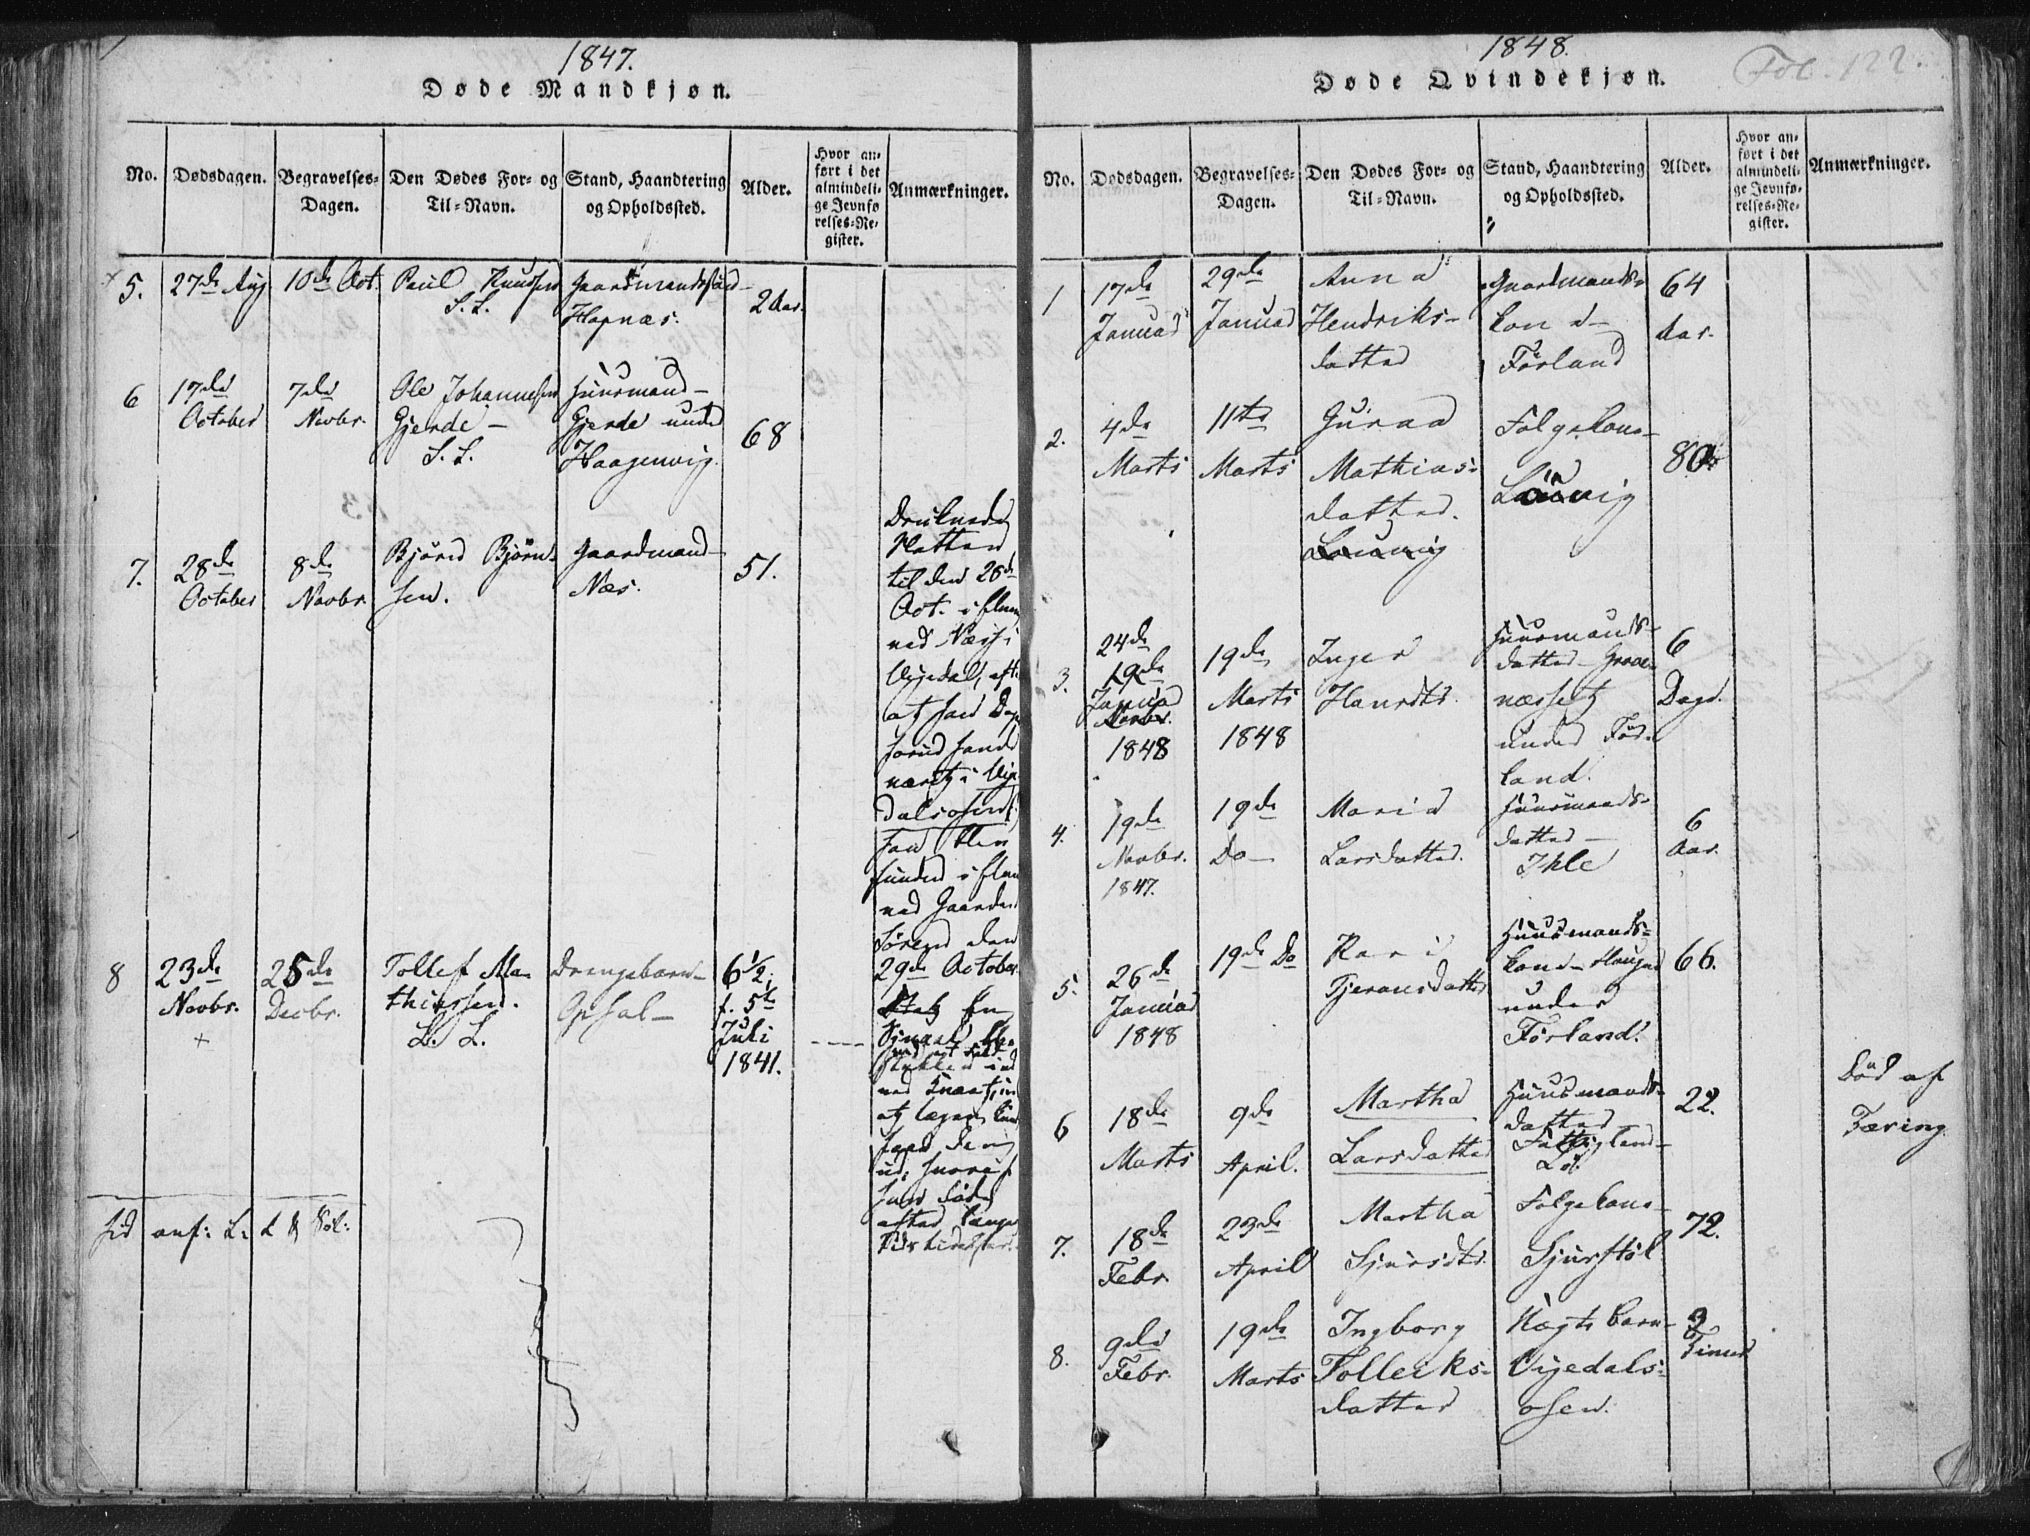 1847.
Døde Mandkjøn.
No.
Dødsdagen.
Begravelses-
Dagen.
Den Dødes For- og
Til-Navn.
Stand, Haandtering
og Opholdssted.
Alder.
Hvor an-
ført i det
almindeli-
ge Jevnfø
relses-Re-
gister.
Anmærkninger.
5.
27de Aug
10de Oct.
Paul Knudsen
S. L.
Gaardmandssøn
Hapnæs.
2 Aar.
6
17de
October
7de
Novbr.
Ole Johannesen
Gjerde –
S. L.
Huusmand –
Gjerde under
Haagenvig.
68
7.
28de
October
8de
Novbr.
Bjørn Bjørn-
sen.
Gaardmand
Næs.
51.
Druknede
Natten
til den 28de
Oct. i
ved Næs i
Vigedal, eft
at han Dag
forud havde
været i Vige
dalsosen,
han blev
funden i
ved Gaarden
den
29de October.
8
23de
Novbr.
+
25de
Decbr.
Tollef Ma-
thiassen.
L. L.
Drengebarn –
Opsal –
6½,
f. 5te
Juli
1841.
ved Knæet,
at lægen
død
efter lange
anf: L. L. &
1848.
Fol. 122.
Døde Qvindekjøn.
No.
Dødsdagen.
Begravelses-
Dagen.
Den Dødes For- og
Til-Navn.
Stand, Haandtering
og Opholdssted.
Alder.
Hvor an-
ført i det
almindeli-
ge Jevnfø-
relses-Re-
gister.
Anmærkninger.
1
17de
Januar
29de
Januar
Anna
Hendriks-
datter
Gaardmands-
kone –
Førland
64
Aar.
2.
4de
Marts
11te
Marts
Guraa
Mathias-
datter.
Lauvvig
Folgekone –
Lauvvig
80
3.
24de
19de
Januar
Novbr.
1848
19de
Marts
1848
Inger
Hansdtr.
Huusmands-
datter –
næsset
under Før-
land.
6
Dage.
4.
19de
Novbr.
1847.
19de
Do –
Maria
Larsdatter.
Huusmands-
datter –
Ihle
6
Aar.
5.
26de
Januar
1848
19de Do
Kari
Tjeransdatter
Huusmands-
kone – Haugen
under
Førland.
66.
6
18de
Marts
9de
April.
Martha
Larsdatter
Huusmands-
datter
22.
Død af
Tæring
7.
18de
Febr.
23de
April
Martha
Sjursdtr.
Folgekone –
Sjurstøl
72.
8.
9de
Febr.
19de
Marts
Ingborg
Tolleiks-
datter
Uægte barn –
Vigedals-
osen.
3
Timer